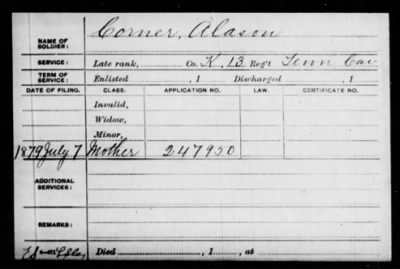 NAME OF SOLDIER: Corner, Alason
SERVICE: Late rank, Co. K, 13 Reg't Tenn Cav
TERM OF SERVICE: Enlisted , 1 Discharged , 1
DATE OF FILING. CLASS. APPLICATION NO. LAW. CERTIFICATE NO.
Invalid,
Widow,
Minor,
1879 July 7 Mother 247920
ADDITIONAL SERVICES:
REMARKS:
Died , 1 , at